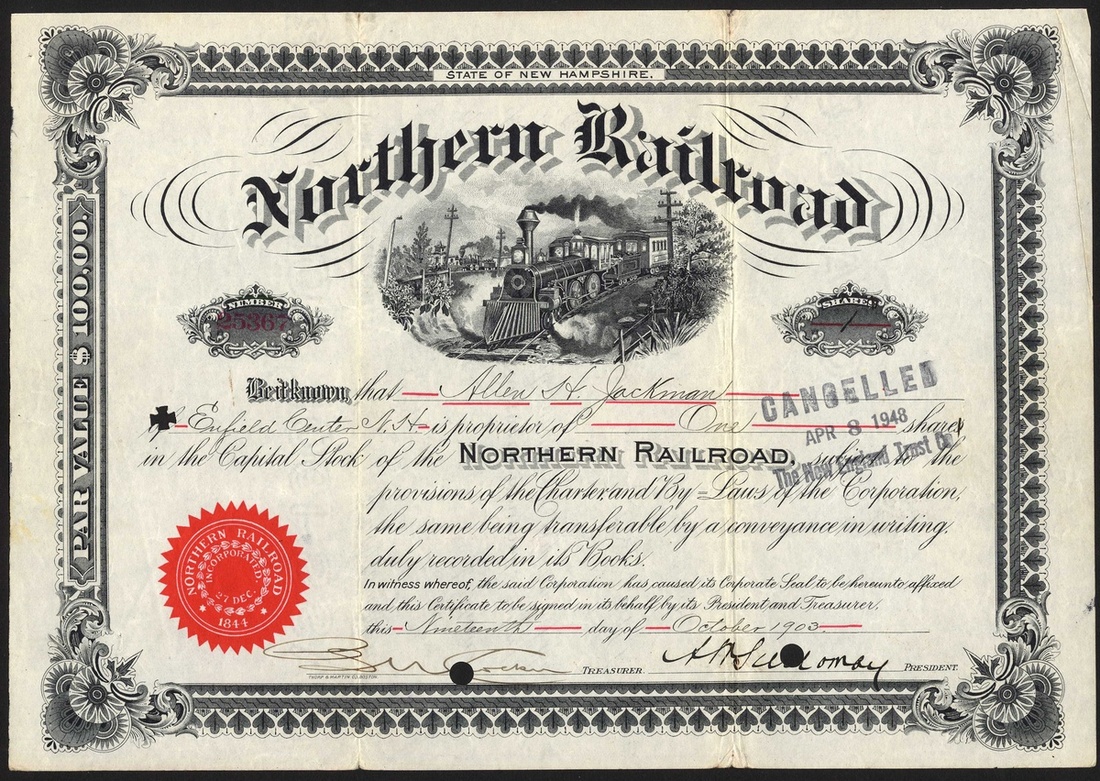 STATE OF NEW HAMPSHIRE.
Northern Railroad
PAR VALUE $100,00.
NUMBER
25367
SHARES
1
Be it known, that Allen H Jackman
of Enfield Center N.H. is proprietor of One shares
in the Capital Stock of the NORTHERN RAILROAD, subject to the
provisions of the Charter and By=Laws of the Corporation,
the same being transferable by a conveyance in writing
duly recorded in its Books.
CANCELLED
APR 8 1948
The New England Trust Co
In witness whereof, the said Corporation has caused its Corporate Seal to be hereunto affixed
and this Certificate to be signed in its behalf by its President and Treasurer,
this Nineteenth day of October 1903.
NORTHERN RAILROAD
INCORPORATED
27 DEC.
1844
TREASURER.
PRESIDENT.
THORP & MARTIN CO. BOSTON.